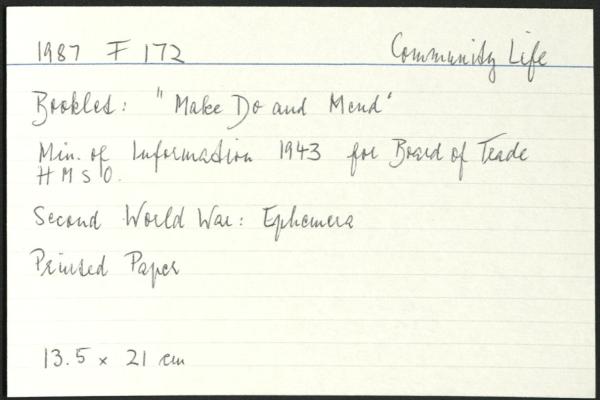 1987 F 172
Community Life
Booklet: "Make Do and Mend'
Min. of Information 1943 for Board of Trade
H M S O.
Second World War: Ephemera
Printed Paper
13.5 x 21 cm